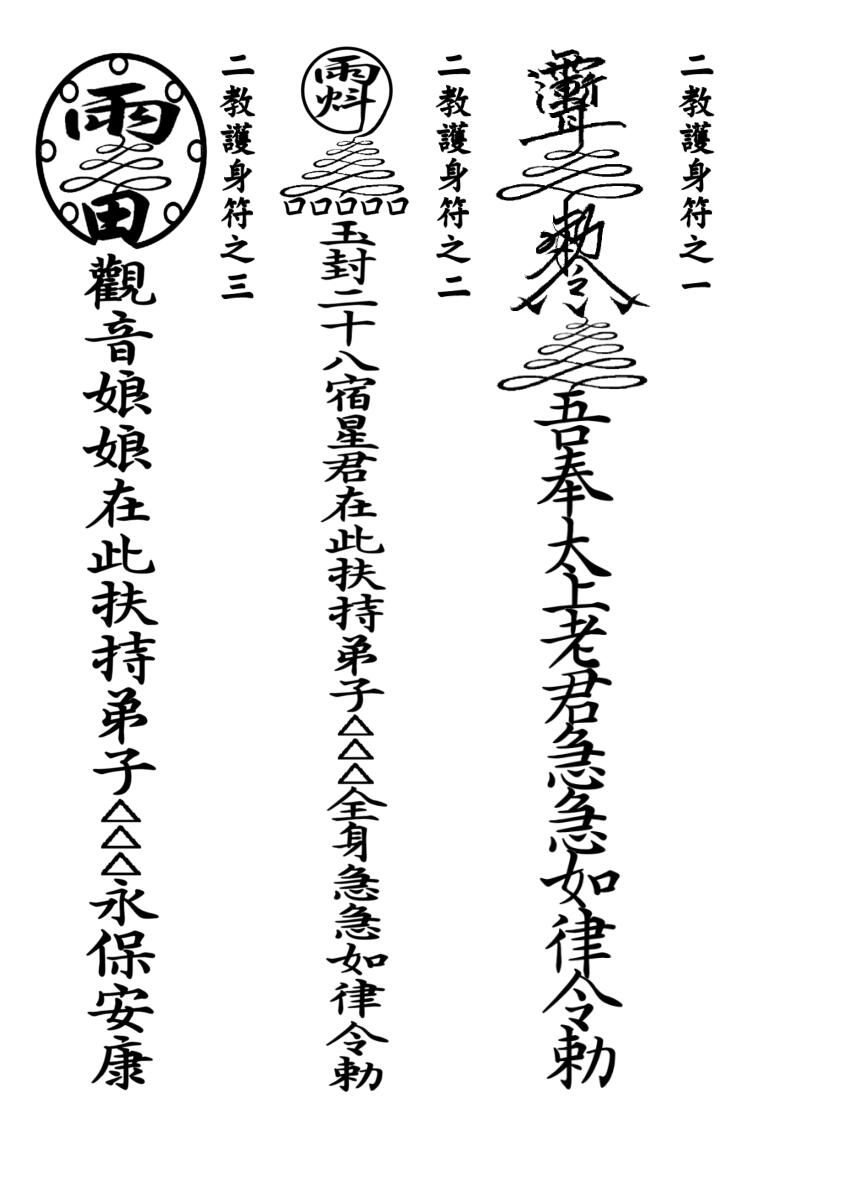 二教護身符之一
勅令
吾奉太上老君急急如律令勅
二教護身符之二
玉封二十八宿星君在此扶持弟子△△△全身急急如律令勅
二教護身符之三
雨
田
觀音娘娘在此扶持弟子△△△永保安康